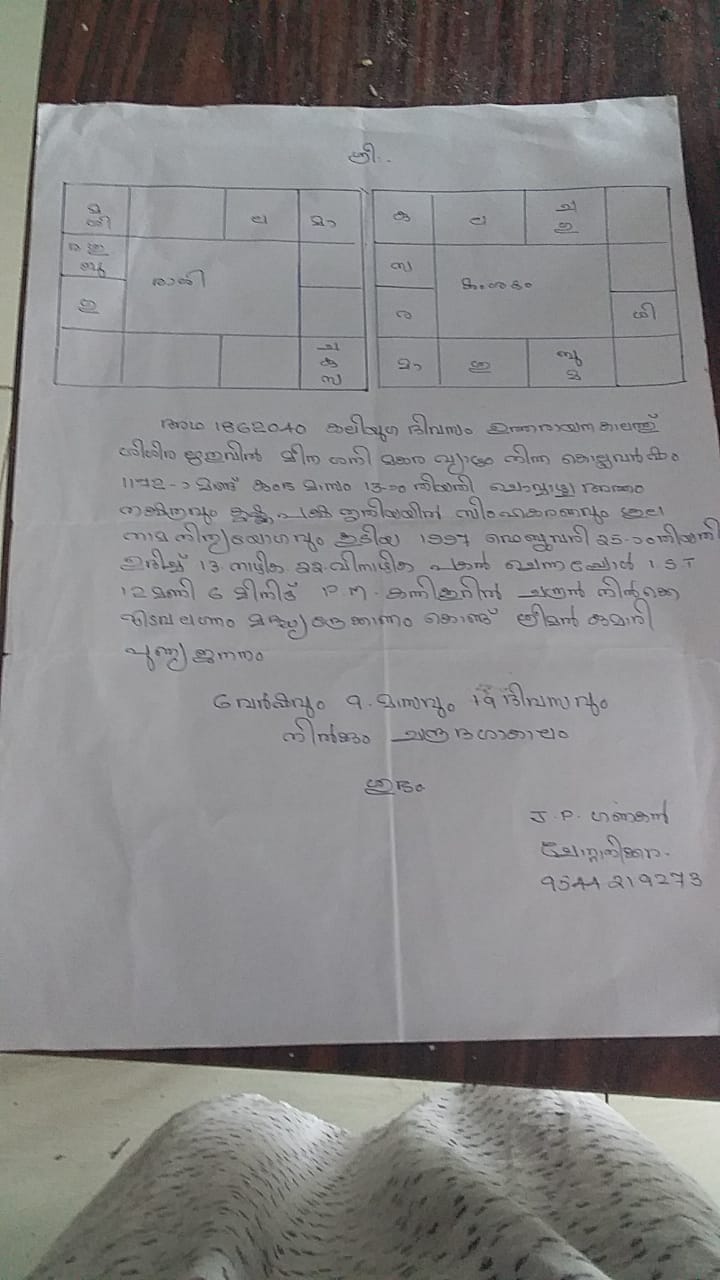 ശ്രീ..
മ ശി ല മാ
ര ശു ബു
രാശി
ഗു
ച കു സ
കു ല ച ഗു
സ
അംശകം
ര ശി
മാ ശു ബു മ
അഥ 1862040 കലിയുഗ ദിവസം ഉത്തരായന കാലത്ത്
ശിശിര ഋതുവിൽ മീന ശനി മകര വ്യാഴം നിന്ന കൊല്ലവർഷം
1172-ാമത് കുംഭ മാസം 13-ാം തിയതി ചൊവ്വാഴ്ച അത്തം
നക്ഷത്രവും കൃഷ്ണ പക്ഷ തൃതീയയിൽ സിംഹകരണവും ശൂല
നാമ നിത്യയോഗവും കൂടിയ 1997 ഫെബ്രുവരി 25-ാം തിയതി
ഉദിച്ച് 13 നാഴിക 22 വിനാഴിക പകൽ ചെന്നപ്പോൾ I.S.T
12 മണി 6 മിനിട്ട് P.M. കന്നികൂറിൽ ചന്ദ്രൻ നിൽക്കെ
ഇടവ ലഗ്നം കൊണ്ട് ശ്രീമൻ കുമാരി
പുണ്യ ജനനം
6 വർഷവും 9 മാസവും 19 ദിവസവും
നിൽപ്പും ചന്ദ്ര ദശാകാലം
ശുഭം
J.P. ഗണകൻ
9544 219273